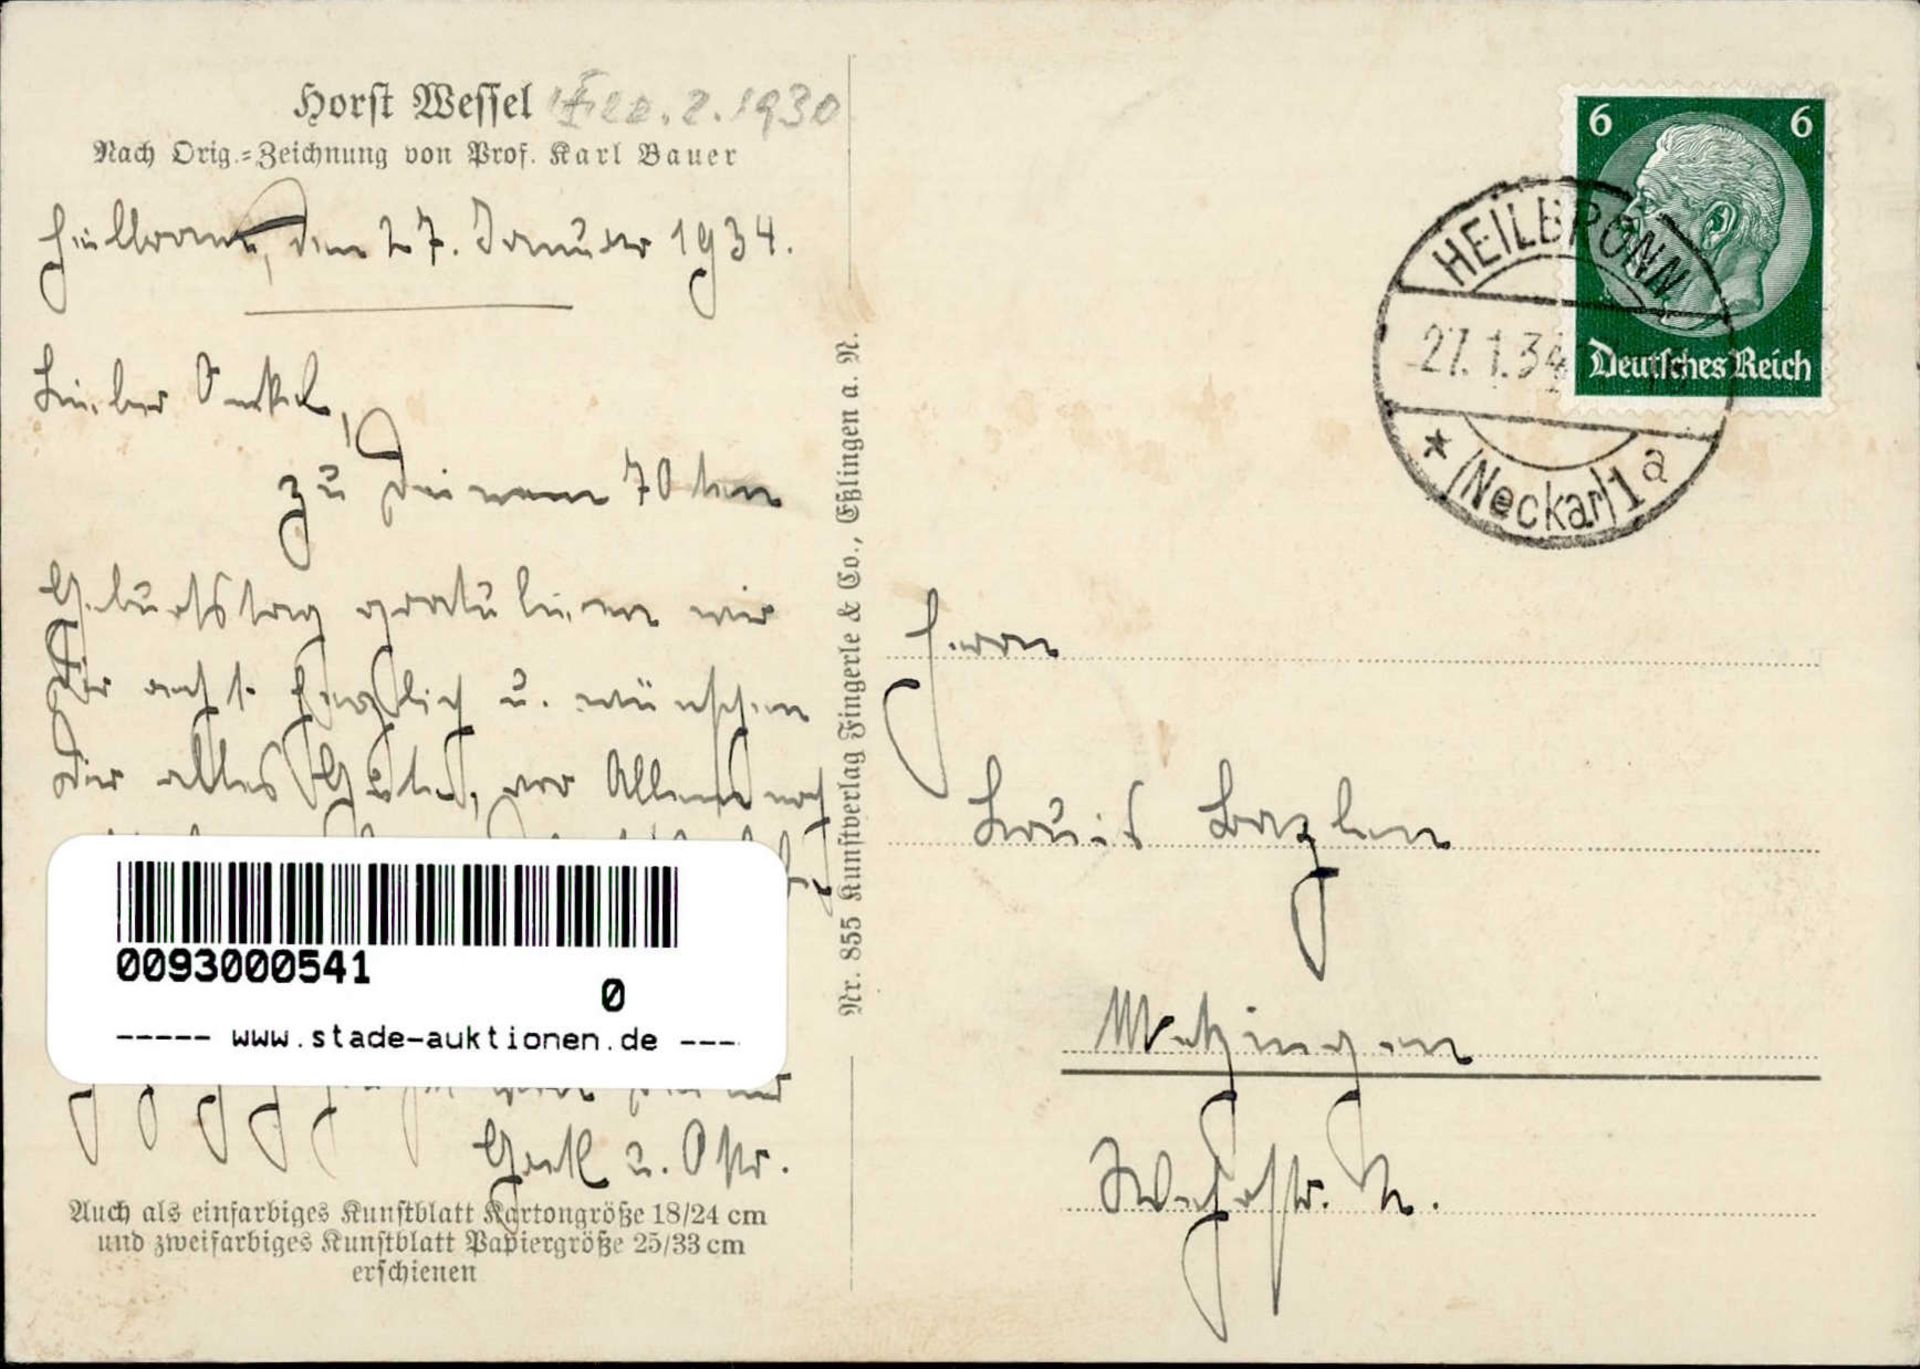 Horst Wessel 2. 1930
Nach Orig.=Zeichnung von Prof. Karl Bauer
Heilbronn, den 27. Januar 1934.
Lieber Onkel,
zu Deinem 70 ten
Geburtstag gratulieren wir
Dir recht herzlich u. wünschen
Dir alles Gute, vor Allem noch
0093000541
0
----- www.stade-auktionen.de ----
u.
Auch als einfarbiges Kunstblatt Kartongröße 18/24 cm
und zweifarbiges Kunstblatt Papiergröße 25/33 cm
erschienen
Nr. 855 Kunstverlag Fingerle & Co., Eßlingen a. N.
6 6
Deutsches Reich
HEILBRONN
27.1.34
* (Neckar) 1 a
Herrn
Louis Bazlen
Metzingen